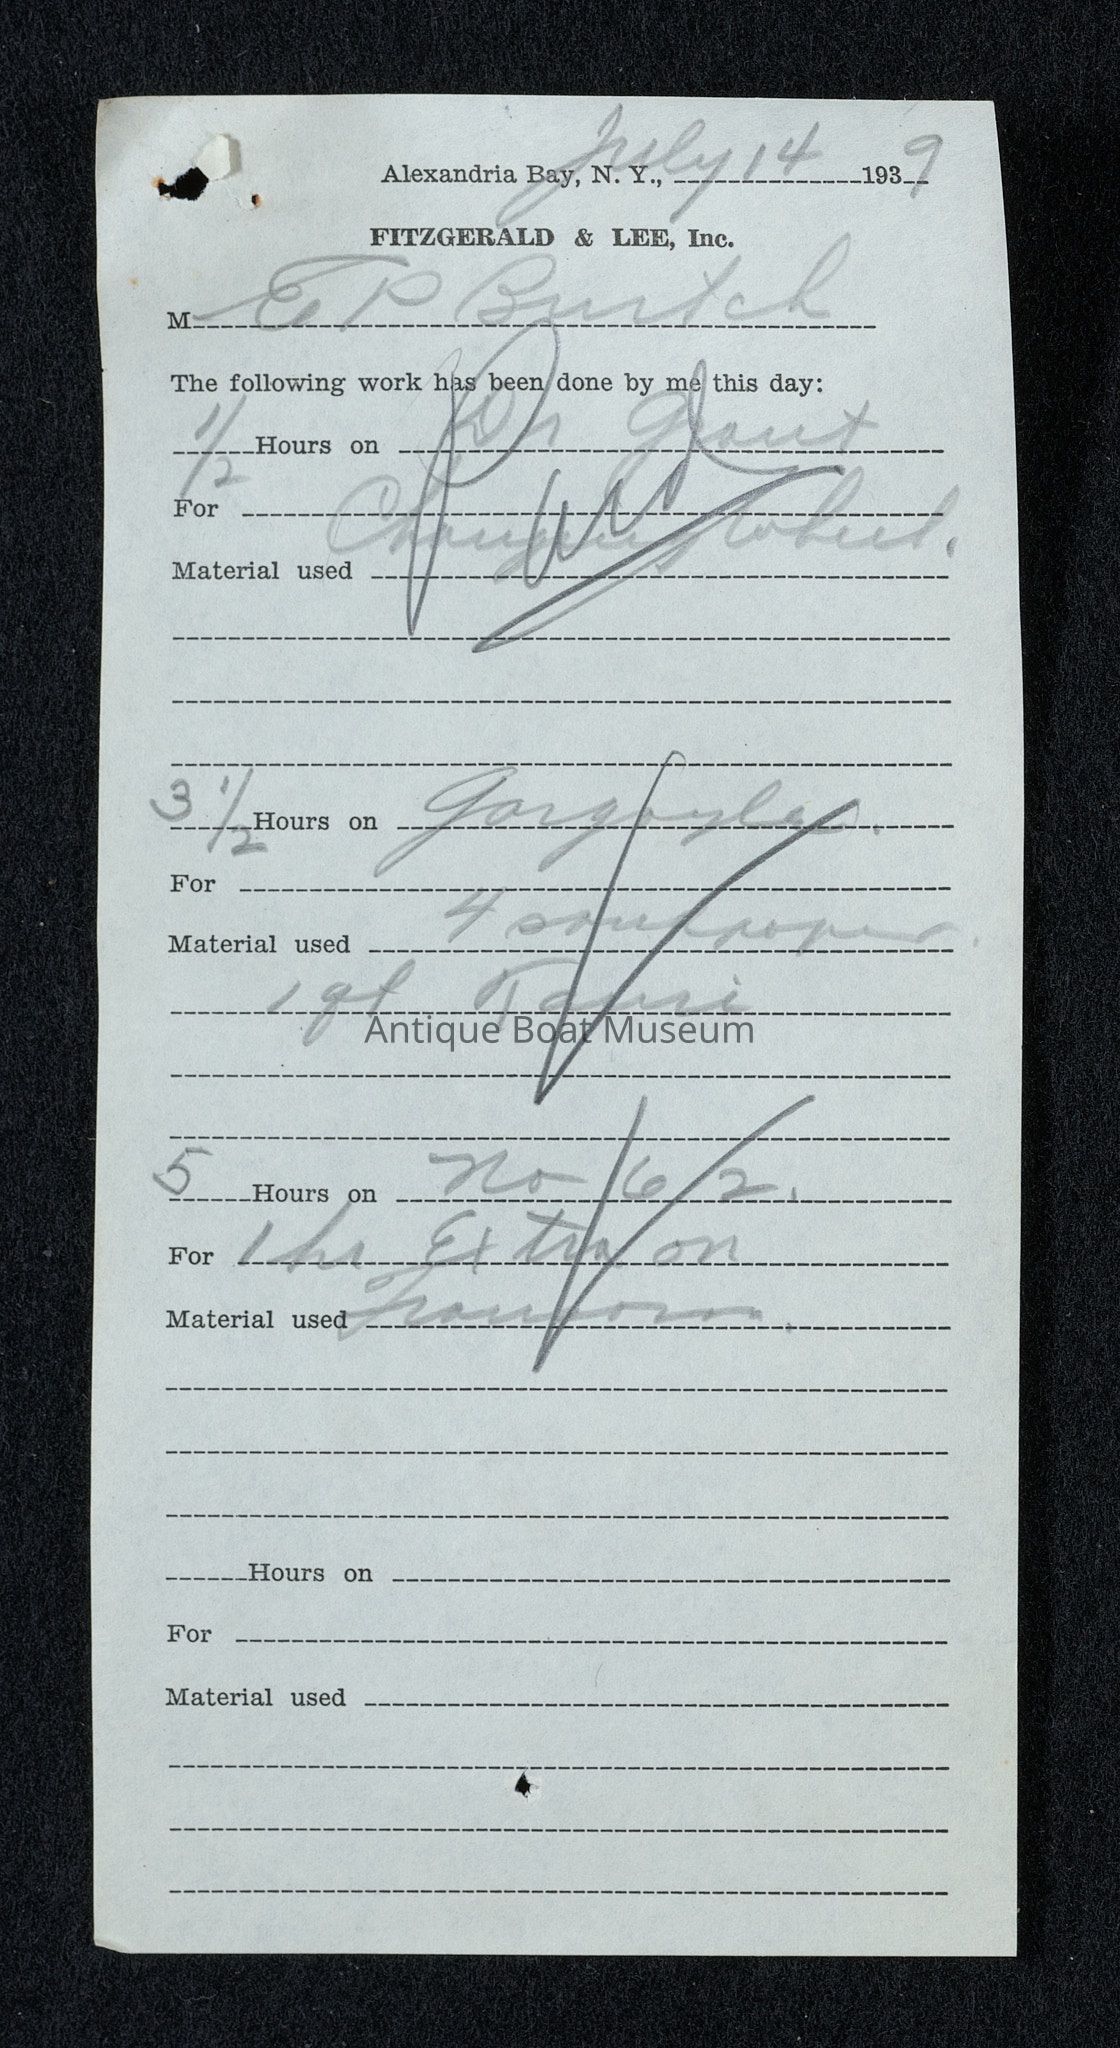 Alexandria Bay, N. Y., July 14 1939
FITZGERALD & LEE, Inc.
M E P Burtch
The following work has been done by me this day:
1/2 Hours on Dr Grout
For Changing Wheel.
Material used
Pd
3 1/2 Hours on Gargoyle.
For
Material used 4 sandpaper.
1 qt
Antique Boat Museum
5 Hours on No 62.
For 1 hr Extra on
Material used Transom.
Hours on
For
Material used